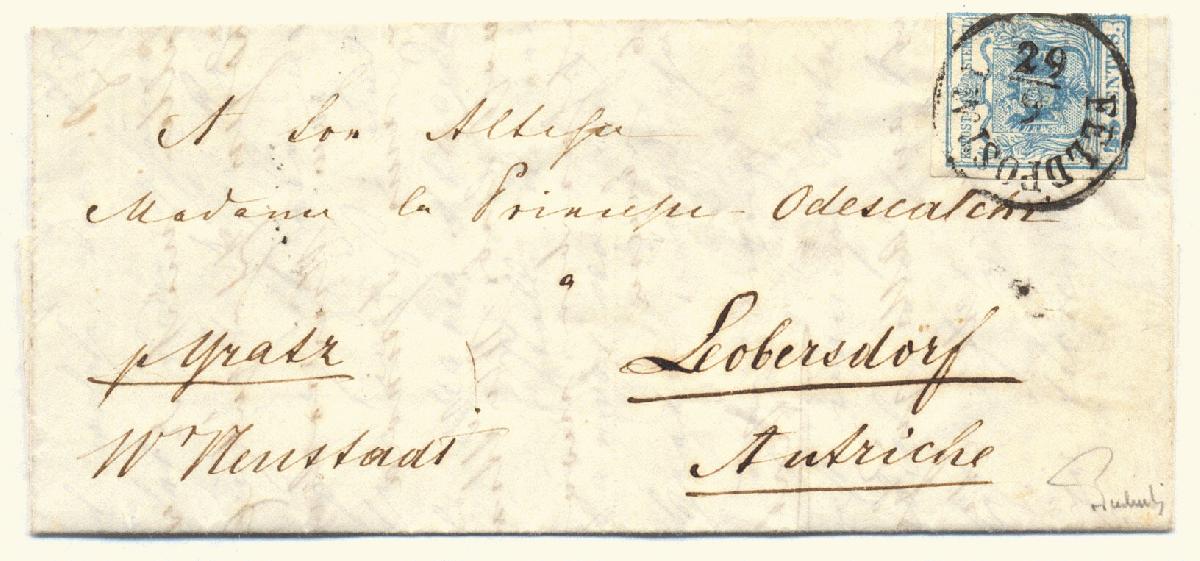 29
9/6
FELDPOST No I
A Son Altesse
Madame la Princesse Odescalchi
a
Leobersdorf
p Gratz
Autriche
Wr Neustadt